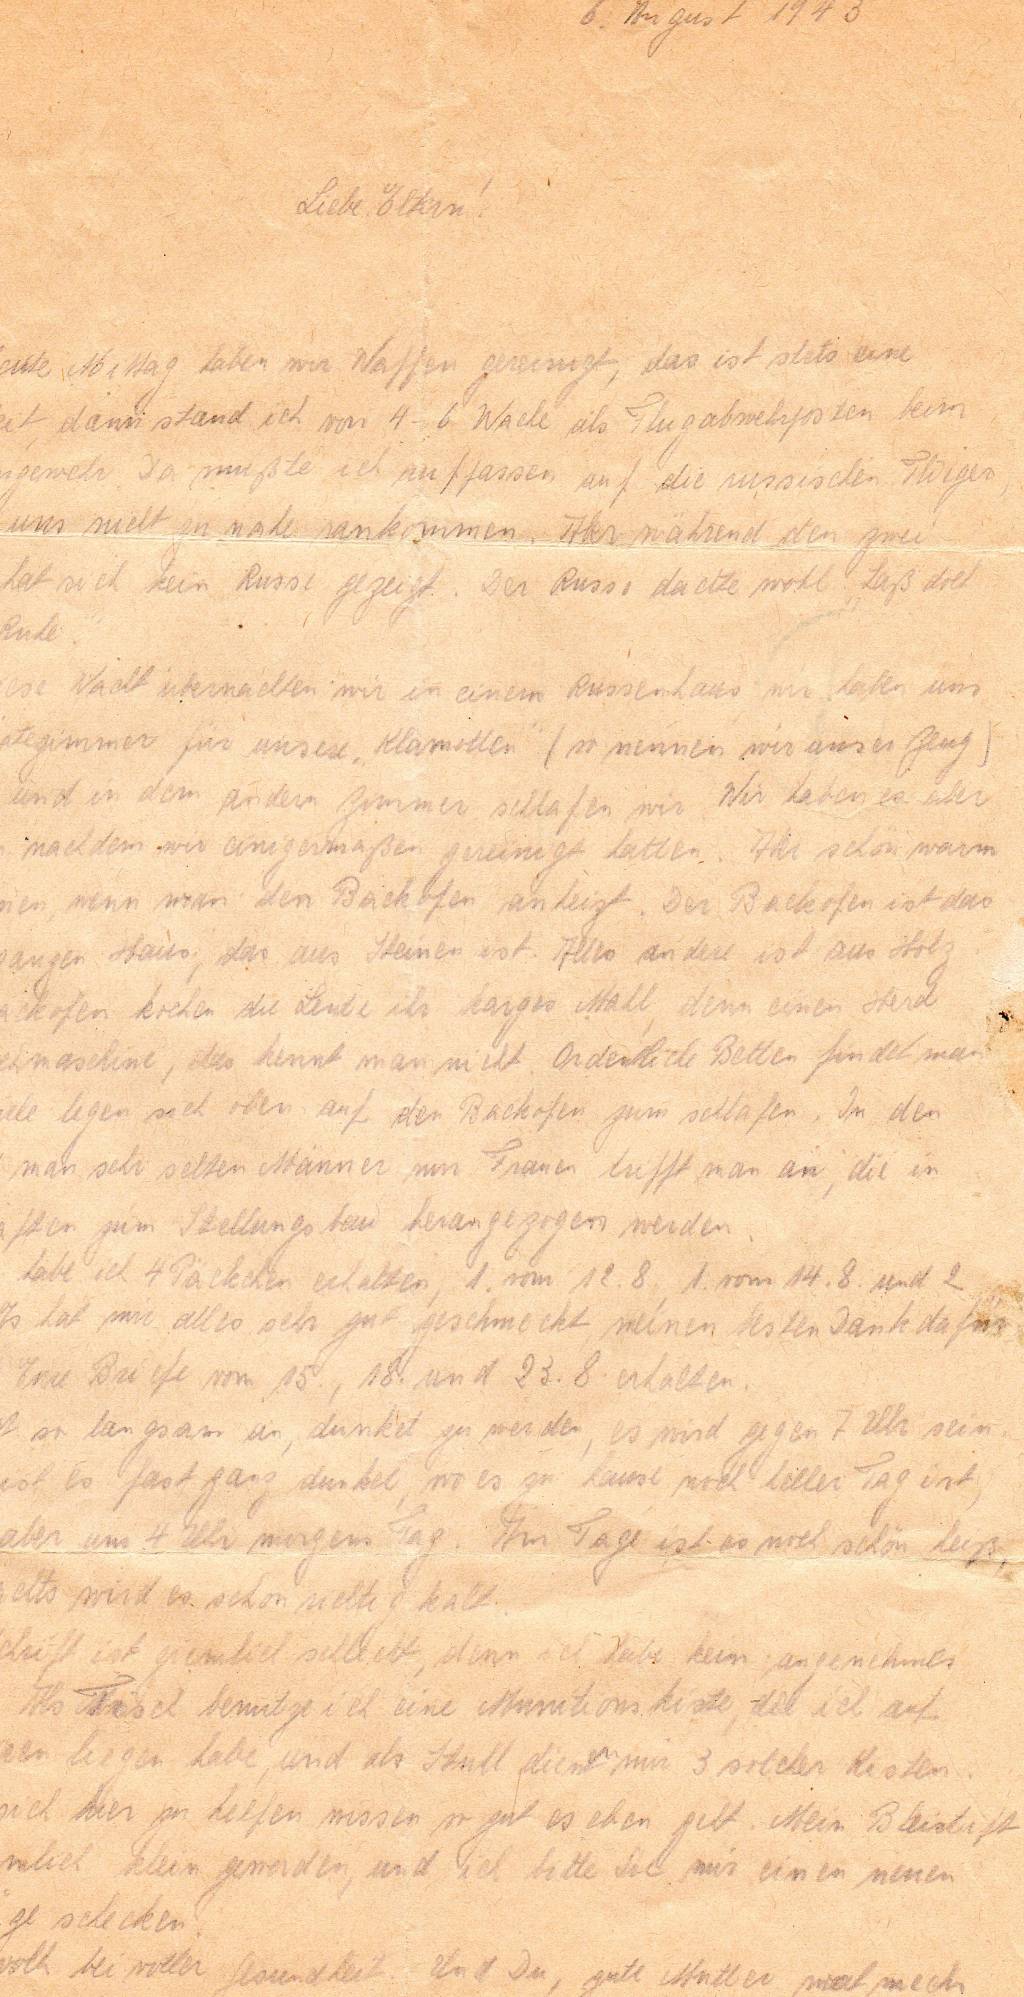 6. August 1943
Liebe Eltern!
eute Mittag haben wir Waffen gereinigt, das ist stets eine
eit, dann stand ich von 4-6 Wache als Flugabwehrposten beim
ngewehr. Da mußte ich aufpassen auf die russischen Flieger,
uns nicht zu nahe rankommen. Aber während den zwei
hat sich kein Russe gezeigt. Der Russe dachte wohl „Laß doch
Ruhe".
ese Nacht übernachten wir in einem Russenhaus wir haben uns
für unsere „Klamotten" (so nennen wir unser Zeug)
und in dem andern Zimmer schlafen wir. Wir haben es aber
nachdem wir einigermaßen gereinigt hatten. Aber schön warm
nen, wenn man den Backofen anheizt. Der Backofen ist das
ganzen Haus, das aus Steinen ist. Alles andere ist aus Holz.
ackofen kochen die Leute ihr karges Mahl, denn einen Herd
hmaschine, das kennt man nicht. Ordentliche Betten findet man
legen sich oben auf den Backofen zum schlafen. In den
man sehr selten Männer nur Frauen trifft man an, die in
aften zum Stellungsbau herangezogen werden.
habe ich 4 Päckchen erhalten, 1. vom 12.8, 1. vom 14.8. und 2
Es hat mir alles sehr gut geschmeckt, meinen besten Dank dafür
Eure Briefe vom 15., 18. und 23.8. erhalten.
so langsam an, dunkel zu werden, es wird gegen 7 Uhr sein.
ist es fast ganz dunkel, wo es zu hause noch heller Tag ist,
aber um 4 Uhr morgens Tag. Am Tage ist es noch schön heiß,
achts wird es schon richtig kalt.
chrift ist ziemlich schlecht, denn ich habe kein angenehmes
Als Tisch benutze ich eine Munitionskiste, die ich auf
liegen habe, und als Stuhl dienen mir 3 solcher Kisten.
sich hier zu helfen wissen so gut es eben geht. Mein Bleistift
mlich klein geworden, und ich bitte Sie mir einen neuen
ge schicken.
wohl bei voller Gesundheit. Und Du, gute Mutter